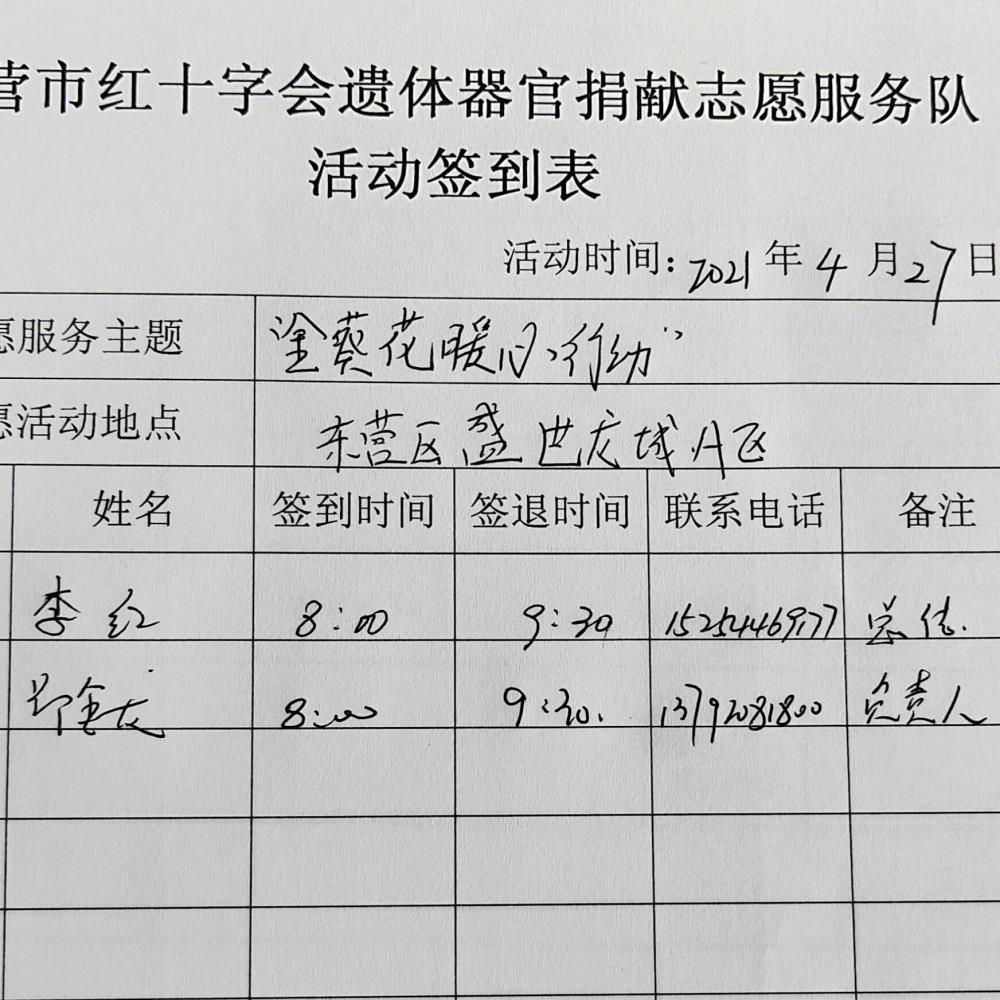 营市红十字会遗体器官捐献志愿服务队
活动签到表
活动时间：2021年4月27日
愿服务主题 金葵花暖心行动”
愿活动地点 东营区盛世龙城A区
姓名 签到时间 签退时间 联系电话 备注
李红 8:00 9:30 15254469177 总信.
郑金龙 8:00 9:30. 13792081800 负责人